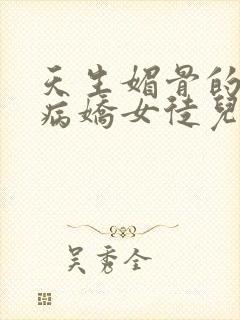 天生媚骨的
病嬌女徒兒
吳秀全